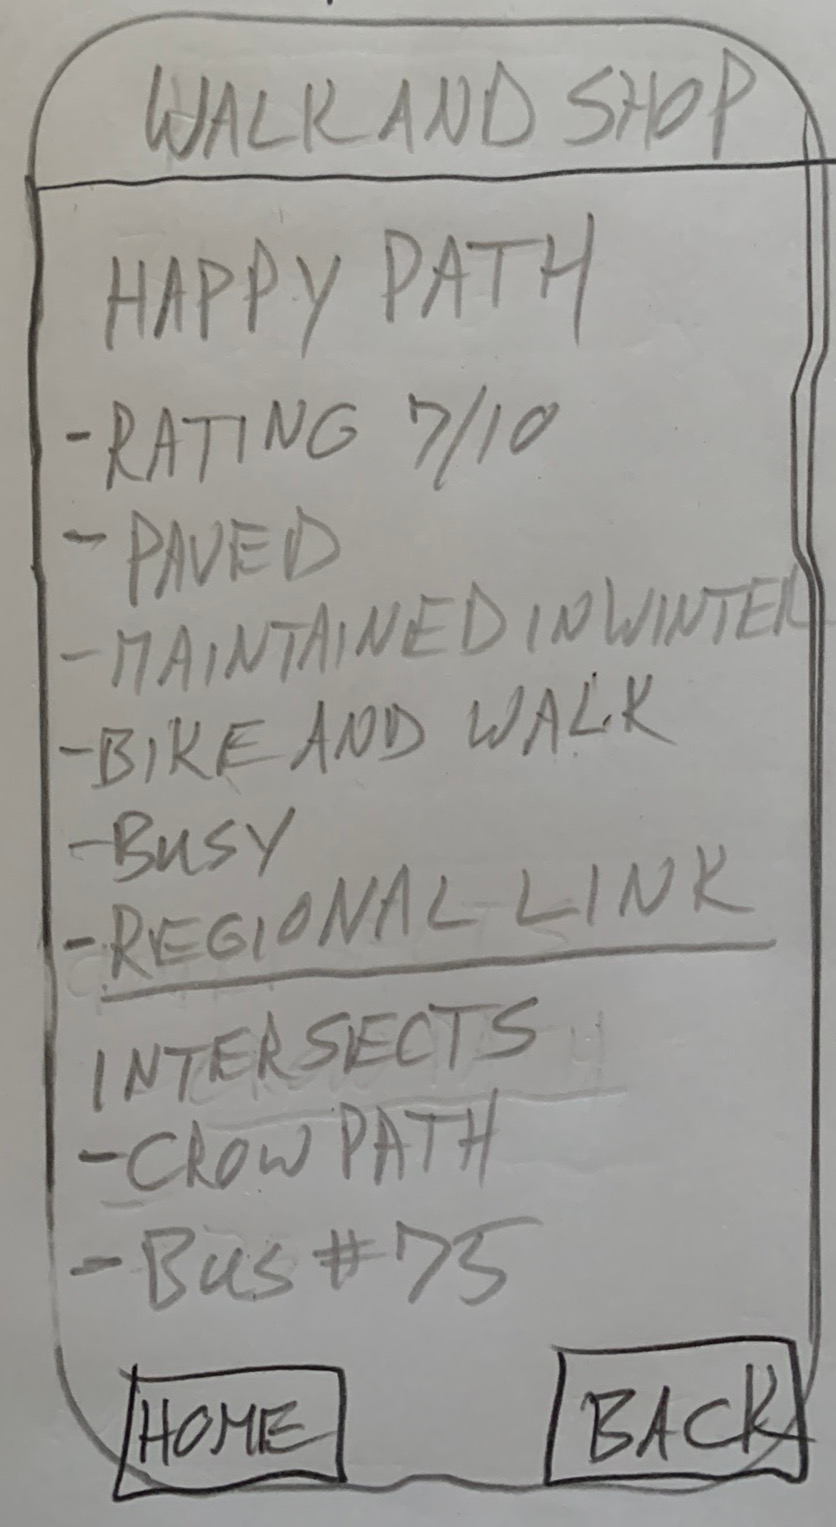 WALK AND SHOP
HAPPY PATH
- RATING 7/10
- PAVED
- MAINTAINED IN WINTER
- BIKE AND WALK
- BUSY
- REGIONAL LINK
INTERSECTS
- CROW PATH
- BUS # 75
HOME BACK